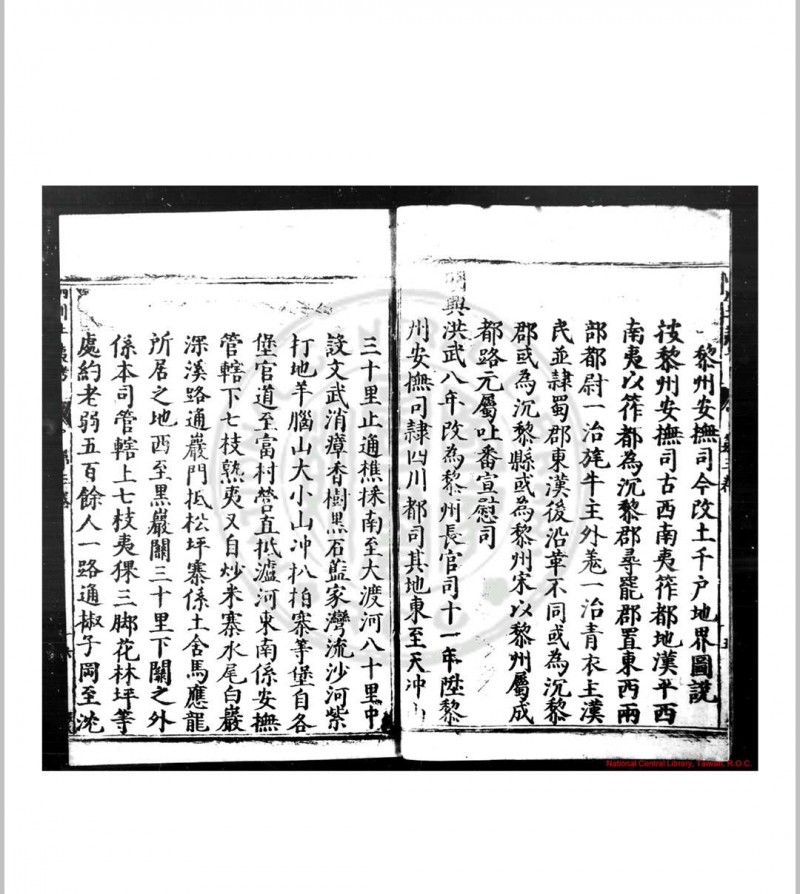 黎州安撫司今改土千戶地界圖說
按黎州安撫司古西南夷筰都地漢平西
南夷以筰都為沉黎郡尋罷郡置東西兩
部都尉一治旄牛主外羌一治青衣主漢
民並隷蜀郡東漢後沿革不同或為沉黎
郡或為沉黎縣或為黎州宋以黎州屬成
都路元屬吐番宣慰司
興洪武八年改為黎州長官司十一年陞黎
州安撫司隷四川都司其地東至天冲山
三十里止通樵採南至大渡河八十里中
設文武消瘴香樹黑石藍家灣流沙河柴
打地羊腦山大小山冲扒柏寨等堡自各
堡官道至富村營直抵瀘河東南係安撫
管轄下七枝熟夷又自炒米寨水尾白巖
深溪路通巖門抵松坪寨係土舍馬應龍
所居之地西至黑巖關三十里下關之外
係本司管轄上七枝夷猓三脚花林坪等
處約老弱五百餘人一路通椒子岡至沈
National Central Library, Taiwan, R.O.C.